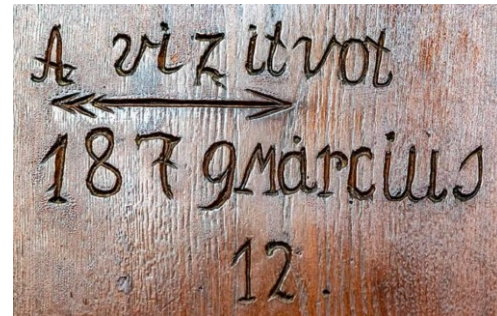 A viz itvot
1879 Március
12.